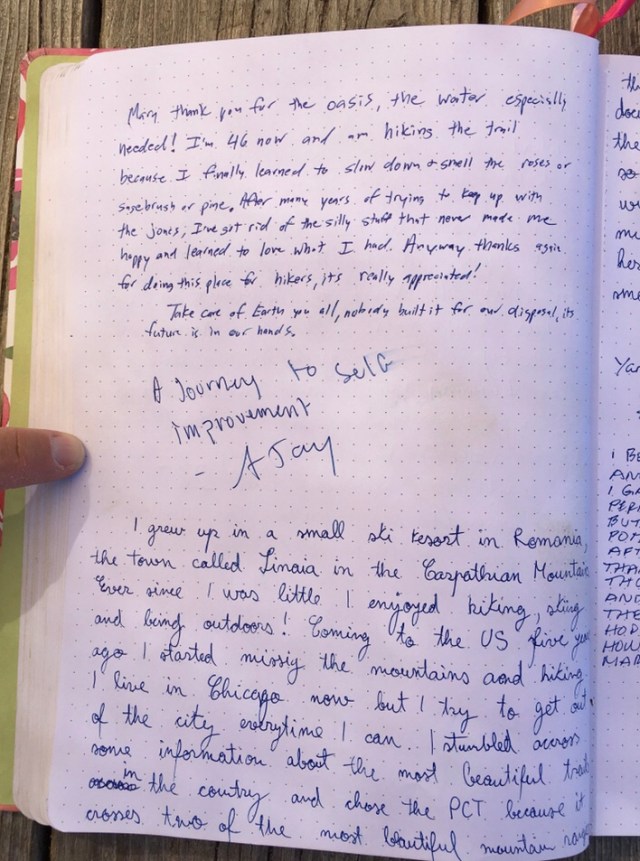 Mary thank you for the oasis, the water especially
needed! I'm 46 now and am hiking the trail
because I finally learned to slow down + smell the roses or
sagebrush or pine. After many years of trying to keep up with
the jones, I've got rid of the silly stuff that never made me
happy and learned to love what I had. Anyway thanks again
for doing this place for hikers, its really appreciated!
Take care of Earth you all, nobody built it for our disposal, its
future is in our hands.
A Journey to self
improvement
- AJay
I grew up in a small ski resort in Romania,
the town called Sinaia in the Carpathian Mountains
Ever since I was little I enjoyed hiking, skiing
and being outdoors! Coming to the US five years
ago I started missig the mountains and hiking.
I live in Chicago now but I try to get out
of the city everytime I can. I stumbled across
some information about the most beautiful trails
in the coutry and chose the PCT because it
crosses two of the most beautiful mountain rang
th
the
wi
mu
Yar
I BE
AN
I GA
PER
BUT
POH
AFT
THA
TH
AND
THE
HOP
HOW
MAR